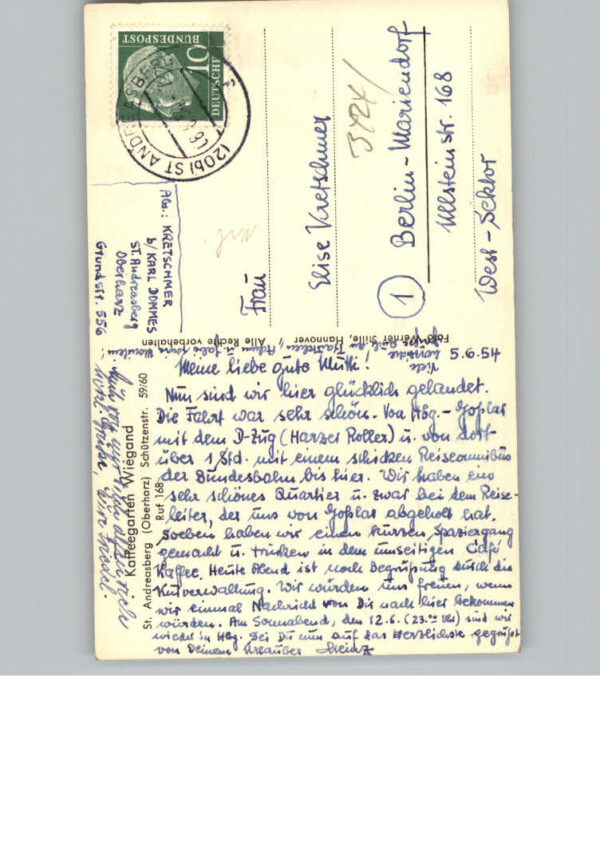 DEUTSCHE
BUNDESPOST
10
(20b) ST ANDREASBERG
Abs.: KRETSCHMER
b/ KARL DOMMES
St. Andreasberg
Oberharz
Grundstr. 556
Frau
Elise Kretschmer
1 Berlin-Mariendorf
Ullsteinstr. 168
West-Sektor
Foto Werner Stille, Hannover
Alle Rechte vorbehalten
Kaffeegarten Wiegand
St. Andreasberg (Oberharz) Schützenstr. 59/60
Ruf 168
5.6.54
Meine liebe gute Mutti!
Nun sind wir hier glücklich gelandet.
Die Fahrt war sehr schön. Von Hbg.-Goßlar
mit dem D-Zug (Harzer Roller) u. von dort
über 1 Std. mit einem schicken Reiseomnibus
der Bundesbahn bis hier. Wir haben ein
sehr schönes Quartier u. zwar bei dem Reise-
leiter, der uns von Goßlar abgeholt hat.
Soeben haben wir einen kurzen Spaziergang
gemacht u. trinken in dem umseitigen Café
Kaffee. Heute Abend ist noch Begrüßung durch die
Kurverwaltung. Wir würden uns freuen, wenn
wir einmal Nachricht von Dir nach hier bekommen
würden. Am Sonnabend, den 12.6. (23.⁰⁰ Uhr) sind wir
wieder in Hbg. Sei Du nun auf das Herzlichste gegrüßt
von Deinem Heinz